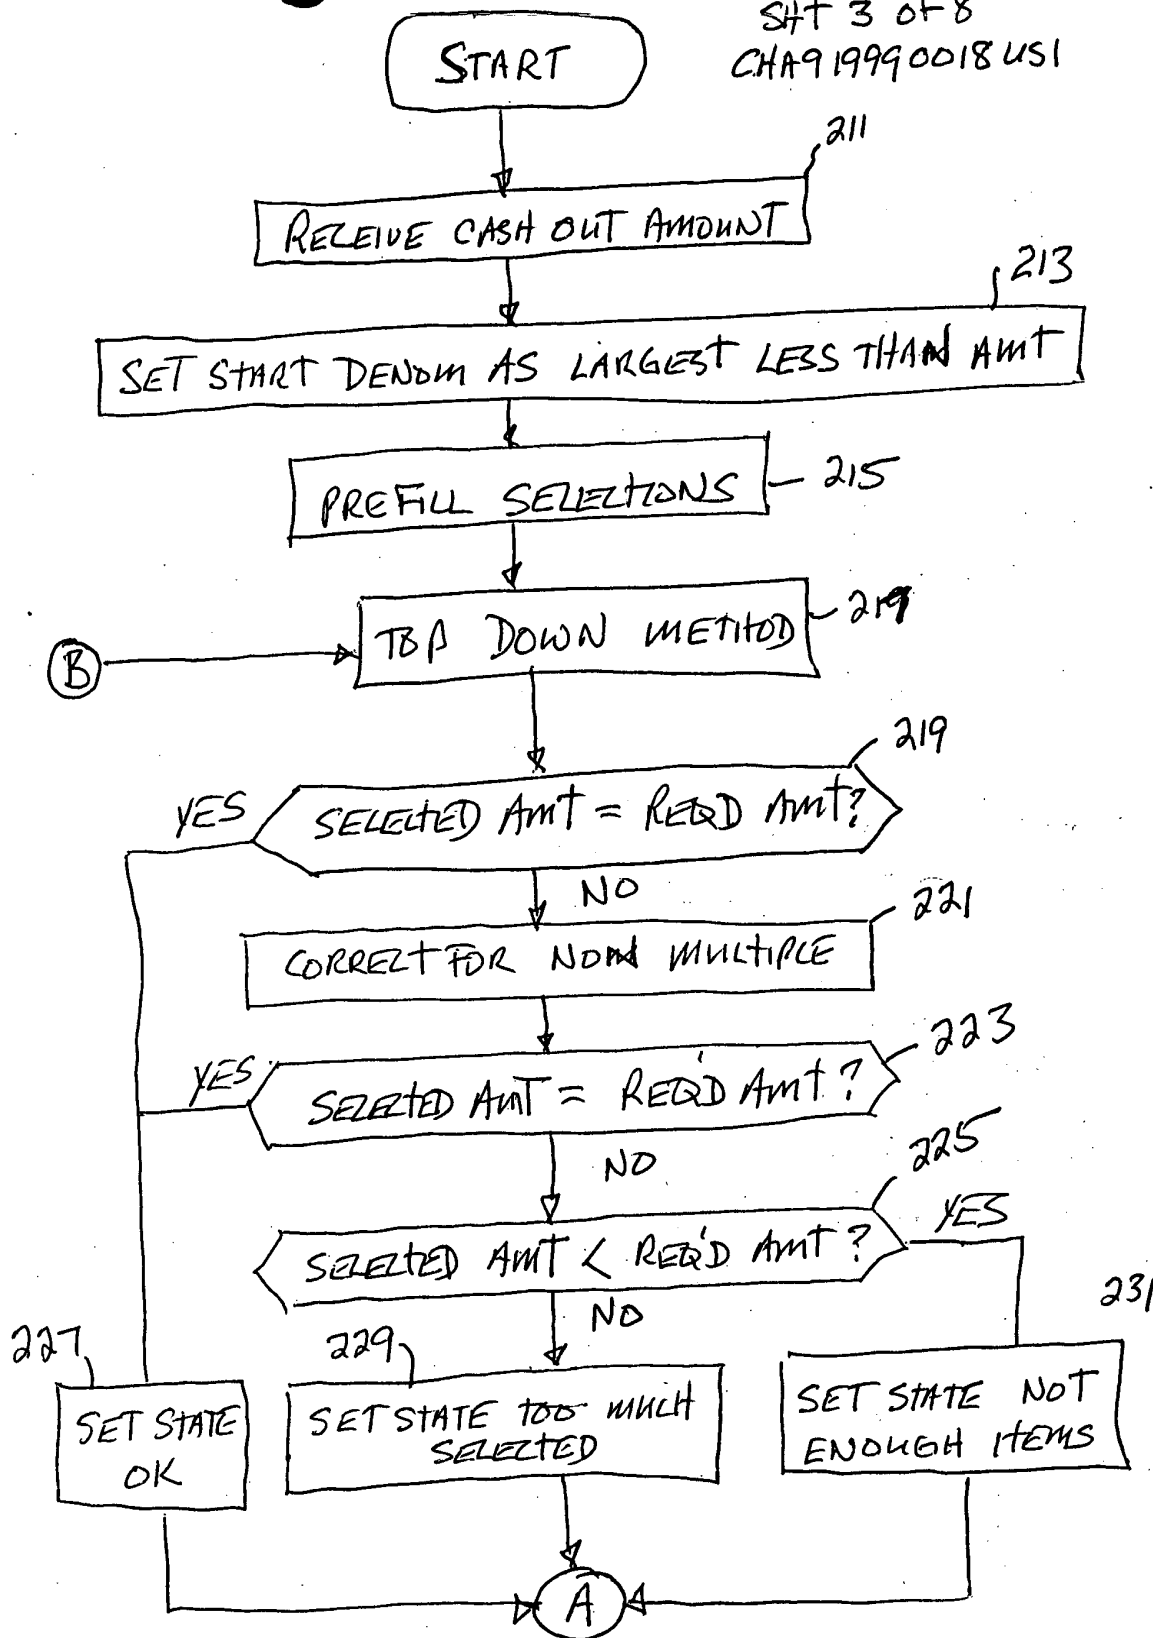 SHT 3 OF 8
CHA919990018US1
START
211
RECEIVE CASH OUT AMOUNT
213
SET START DENOM AS LARGEST LESS THAN AMT
PREFILL SELECTIONS
215
TOP DOWN METHOD
B
219
YES
SELECTED AMT = REQD AMT?
NO
221
CORRECT FOR NON MULTIPLE
223
YES
SELECTED AMT = REQ'D AMT?
NO
225
YES
SELECTED AMT < REQ'D AMT?
NO
231
227
229
SET STATE
OK
SET STATE TOO MUCH
SELECTED
SET STATE NOT
ENOUGH ITEMS
A